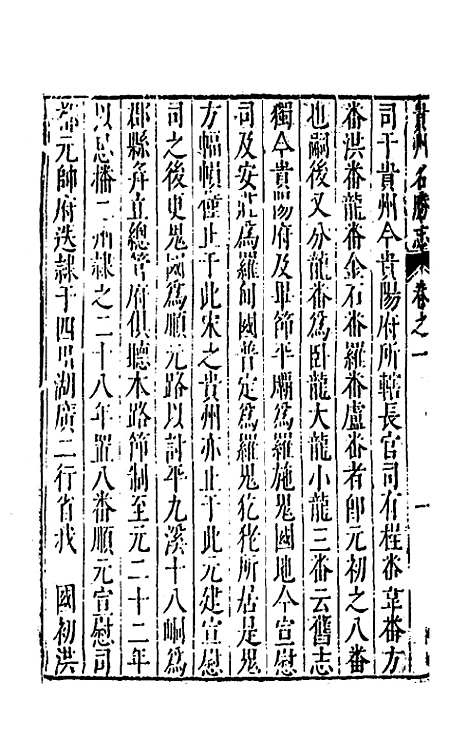 貴州名勝志 卷之一
司于貴州今貴陽府所轄長官司有程番韋番方
番洪番龍番金石番羅番盧番者即元初之八番
也嗣後又分龍番為臥龍大龍小龍三番云舊志
獨今貴陽府及畢節平壩為羅施鬼國地今宣慰
司及安莊為羅甸國普定為羅鬼仡佬所居是鬼
方幅𢄙僅止于此宋之貴州亦止于此元建宣慰
司之後更鬼國為順元路以討平九溪十八峒為
郡縣并立總管府俱聽本路節制至元二十二年
以思播二州隸之二十八年置八番順元宣慰司
都元帥府迭隸于四川湖廣二行省我 國初洪